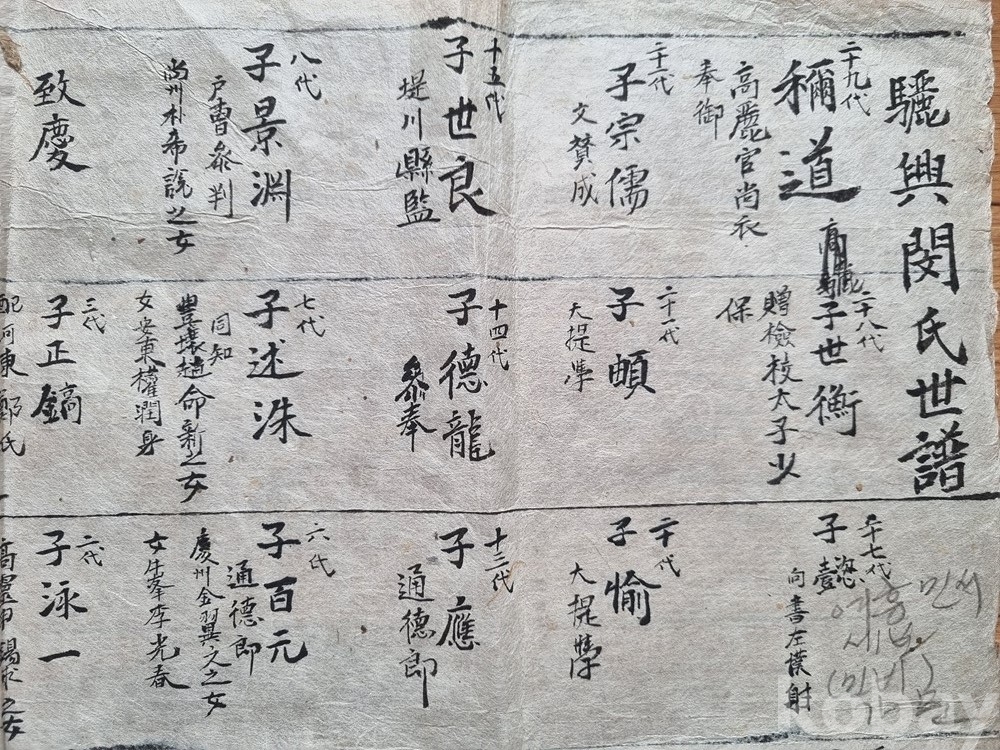 驪興閔氏世譜
二十九代
稱道
高麗官尚衣
奉御
二十八代
子世衡
贈檢校太子少
保
二十七代
子懿
向書左僕射
여흥 민씨
세보
(민비)
二十二代
子宗儒
文贊成
二十一代
子頔
大提學
二十代
子愉
大提學
十五代
子世良
堤川縣監
十四代
子德龍
參奉
十三代
子應
通德郎
八代
子景淵
戶曹參判
尙州朴希說之女
七代
子述洙
同知
豊壤趙命新之女
女安東權潤身
六代
子百元
通德郎
慶州金翼之之女
女峯李光春
致慶
三代
子正鎬
配河東鄭氏
二代
子泳一
高靈申錫求之女
Kobay